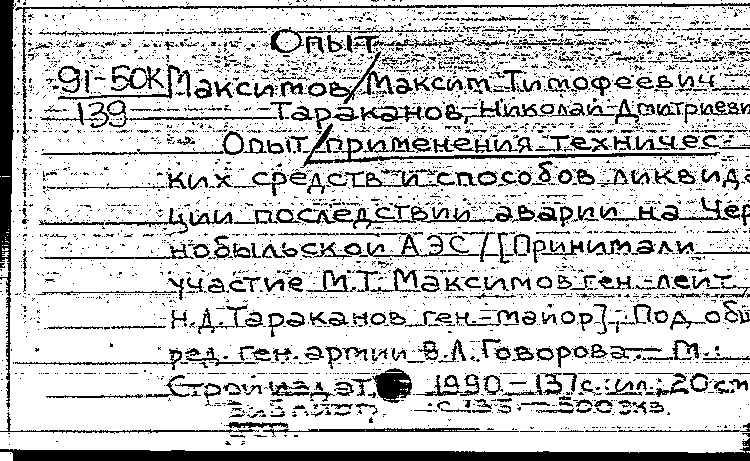 Опыт
91-50К Максимов, Максим Тимофеевич
139 Тараканов, Николай Дмитриеви
Опыт применения техничес-
ких средств и способов ликвида
ции последствий аварии на Чер
нобыльской АЭС / [Принимали
участие М.Т. Максимов ген.-лейт.,
Н.Д. Тараканов ген.-майор]; Под общ
ред. ген. армии В.Л. Говорова. - М.:
Стройиздат, 1990. - 137 с.: ил.; 20 см
500 экз.